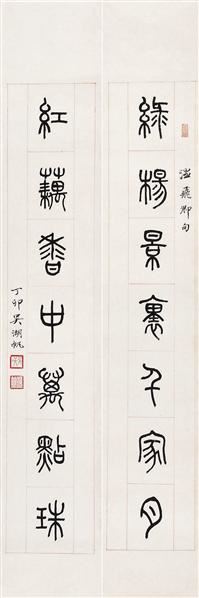 綠楊景裏千家月
溫飛卿句
紅藕香中萬點珠
丁卯吳湖帆